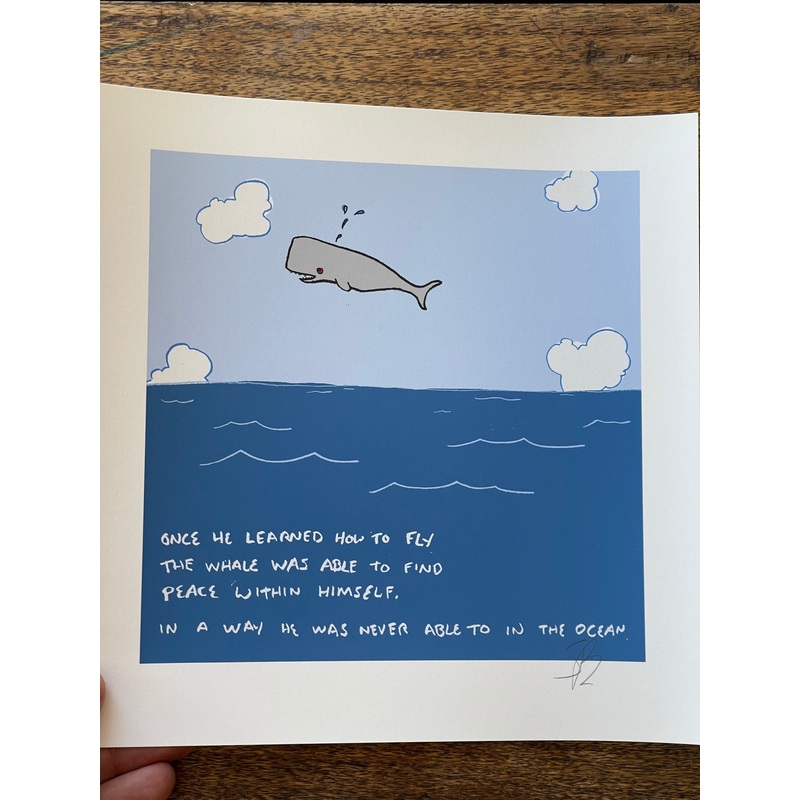 ONCE HE LEARNED HOW TO FLY
THE WHALE WAS ABLE TO FIND
PEACE WITHIN HIMSELF.
IN A WAY HE WAS NEVER ABLE TO IN THE OCEAN.